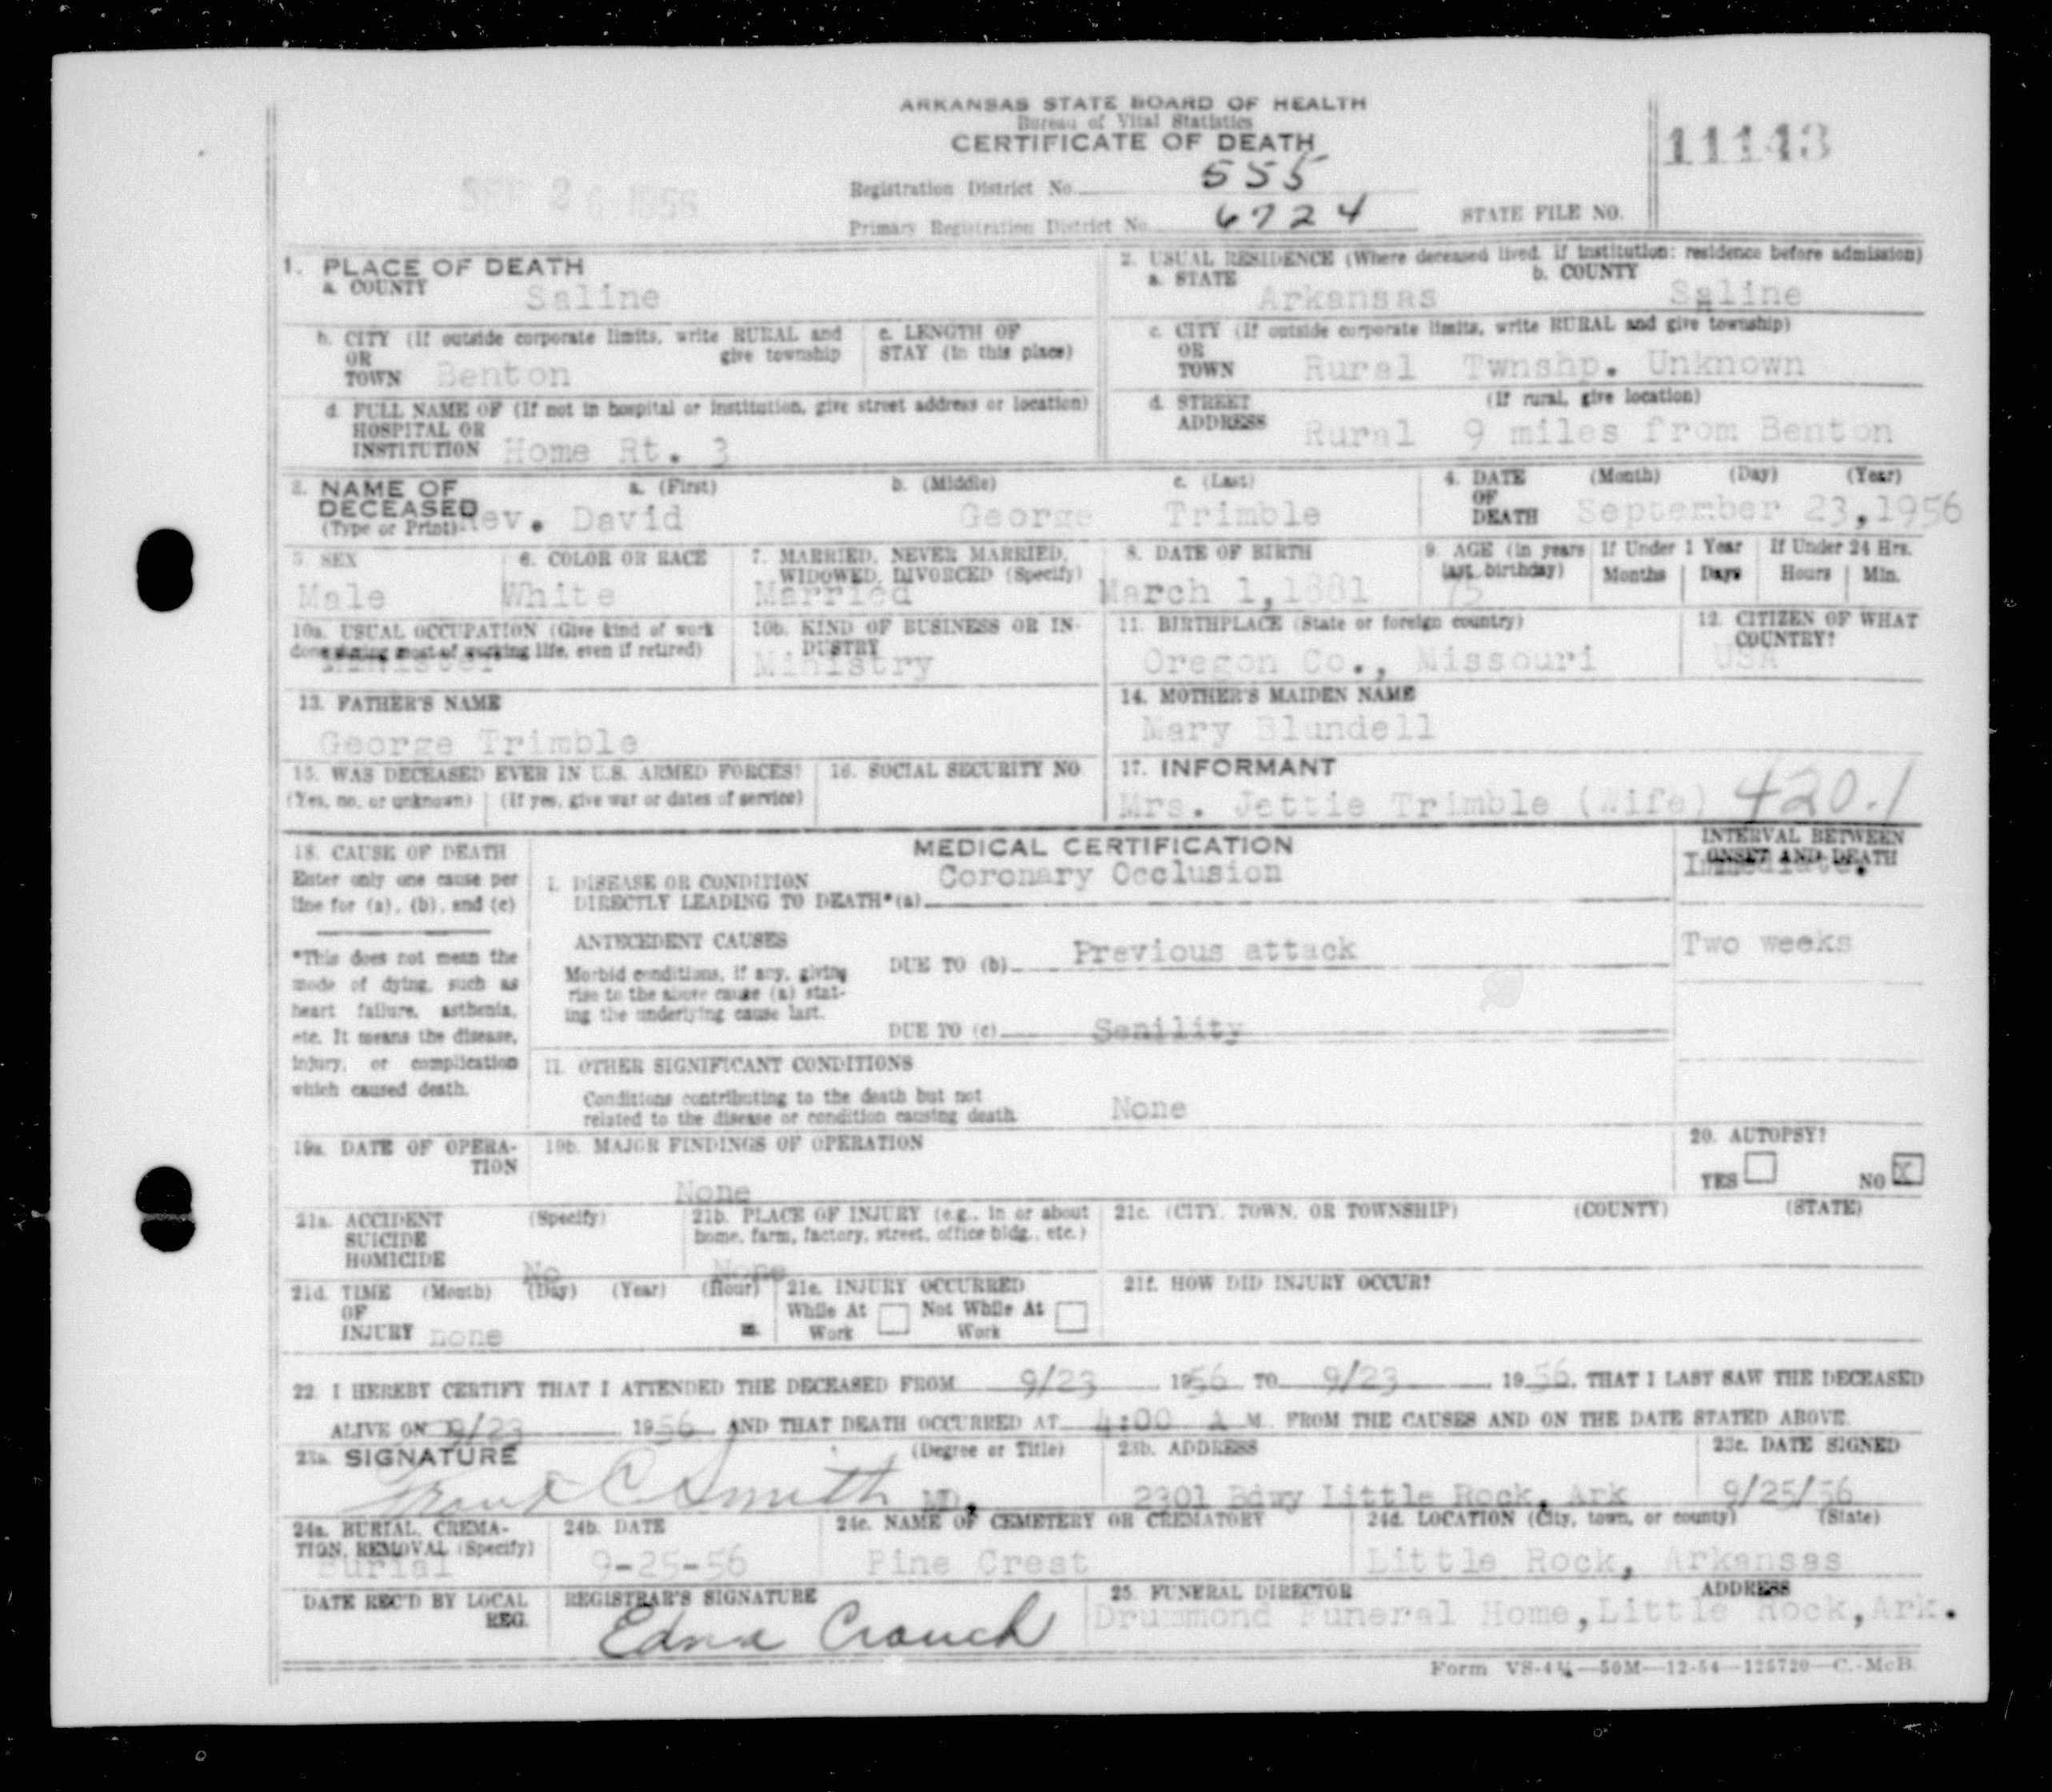 ARKANSAS STATE BOARD OF HEALTH
Bureau of Vital Statistics
CERTIFICATE OF DEATH
11143
SEP 26 1956
Registration District No. 555
Primary Registration District No. 6724
STATE FILE NO.
1. PLACE OF DEATH
a. COUNTY Saline
2. USUAL RESIDENCE (Where deceased lived. if institution: residence before admission)
a. STATE Arkansas b. COUNTY Saline
b. CITY (If outside corporate limits, write RURAL and give township
OR
TOWN Benton
c. LENGTH OF
STAY (in this place)
c. CITY (If outside corporate limits, write RURAL and give township)
OR
TOWN Rural Twnshp. Unknown
d. FULL NAME OF (If not in hospital or institution, give street address or location)
HOSPITAL OR
INSTITUTION Home Rt. 3
d. STREET (If rural, give location)
ADDRESS Rural 9 miles from Benton
3. NAME OF a. (First) b. (Middle) c. (Last)
DECEASED
(Type or Print) Rev. David George Trimble
4. DATE (Month) (Day) (Year)
OF
DEATH September 23,1956
5. SEX
Male
6. COLOR OR RACE
White
7. MARRIED, NEVER MARRIED,
WIDOWED, DIVORCED (Specify)
Married
8. DATE OF BIRTH
March 1,1881
9. AGE (in years
last birthday)
75
If Under 1 Year
Months Days
If Under 24 Hrs.
Hours Min.
10a. USUAL OCCUPATION (Give kind of work
done during most of working life, even if retired)
Minister
10b. KIND OF BUSINESS OR IN-
DUSTRY
Ministry
11. BIRTHPLACE (State or foreign country)
Oregon Co., Missouri
12. CITIZEN OF WHAT
COUNTRY?
USA
13. FATHER'S NAME
George Trimble
14. MOTHER'S MAIDEN NAME
Mary Blundell
15. WAS DECEASED EVER IN U.S. ARMED FORCES?
(Yes, no, or unknown) (If yes, give war or dates of service)
16. SOCIAL SECURITY NO.
17. INFORMANT
Mrs. Jettie Trimble (Wife) 420.1
18. CAUSE OF DEATH
Enter only one cause per
line for (a), (b), and (c)
*This does not mean the
mode of dying, such as
heart failure, asthenia,
etc. It means the disease,
injury, or complication
which caused death.
MEDICAL CERTIFICATION
INTERVAL BETWEEN
ONSET AND DEATH
I. DISEASE OR CONDITION
DIRECTLY LEADING TO DEATH*(a) Coronary Occlusion Immediate.
ANTECEDENT CAUSES
Morbid conditions, if any, giving
rise to the above cause (a) stat-
ing the underlying cause last.
DUE TO (b) Previous attack Two weeks
DUE TO (c) Senility
II. OTHER SIGNIFICANT CONDITIONS
Conditions contributing to the death but not
related to the disease or condition causing death.
None
19a. DATE OF OPERA-
TION
19b. MAJOR FINDINGS OF OPERATION
None
20. AUTOPSY?
YES NO X
21a. ACCIDENT (Specify)
SUICIDE
HOMICIDE
No
21b. PLACE OF INJURY (e.g., in or about
home, farm, factory, street, office bldg., etc.)
None
21c. (CITY, TOWN, OR TOWNSHIP) (COUNTY) (STATE)
21d. TIME (Month) (Day) (Year) (Hour)
OF
INJURY none m.
21e. INJURY OCCURRED
While At Work Not While At Work
21f. HOW DID INJURY OCCUR?
22. I HEREBY CERTIFY THAT I ATTENDED THE DECEASED FROM 9/23 1956 TO 9/23 1956, THAT I LAST SAW THE DECEASED
ALIVE ON 9/23 1956 AND THAT DEATH OCCURRED AT 4:00 A M. FROM THE CAUSES AND ON THE DATE STATED ABOVE.
23a. SIGNATURE (Degree or Title)
Frank C Smith MD.
23b. ADDRESS
2301 Bdwy Little Rock, Ark
23c. DATE SIGNED
9/25/56
24a. BURIAL, CREMA-
TION, REMOVAL (Specify)
Burial
24b. DATE
9-25-56
24c. NAME OF CEMETERY OR CREMATORY
Pine Crest
24d. LOCATION (City, town, or county) (State)
Little Rock, Arkansas
DATE REC'D BY LOCAL
REG.
REGISTRAR'S SIGNATURE
Edna Crouch
25. FUNERAL DIRECTOR ADDRESS
Drummond Funeral Home,Little Rock,Ark.
Form VS-4 —50M—12-54—125720—C.-McB.